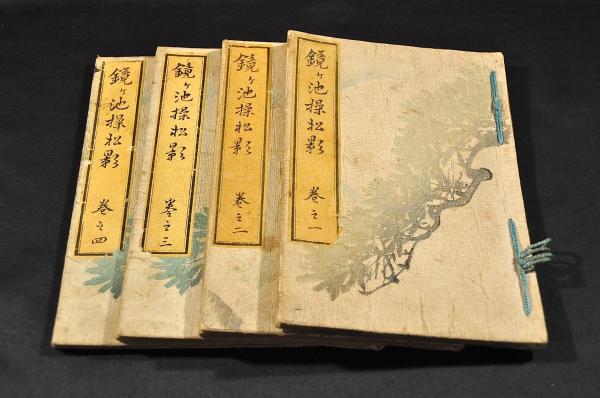 鏡ヶ池操松影 巻之一
鏡ヶ池操松影 巻之二
鏡ヶ池操松影 巻之三
鏡ヶ池操松影 巻之四